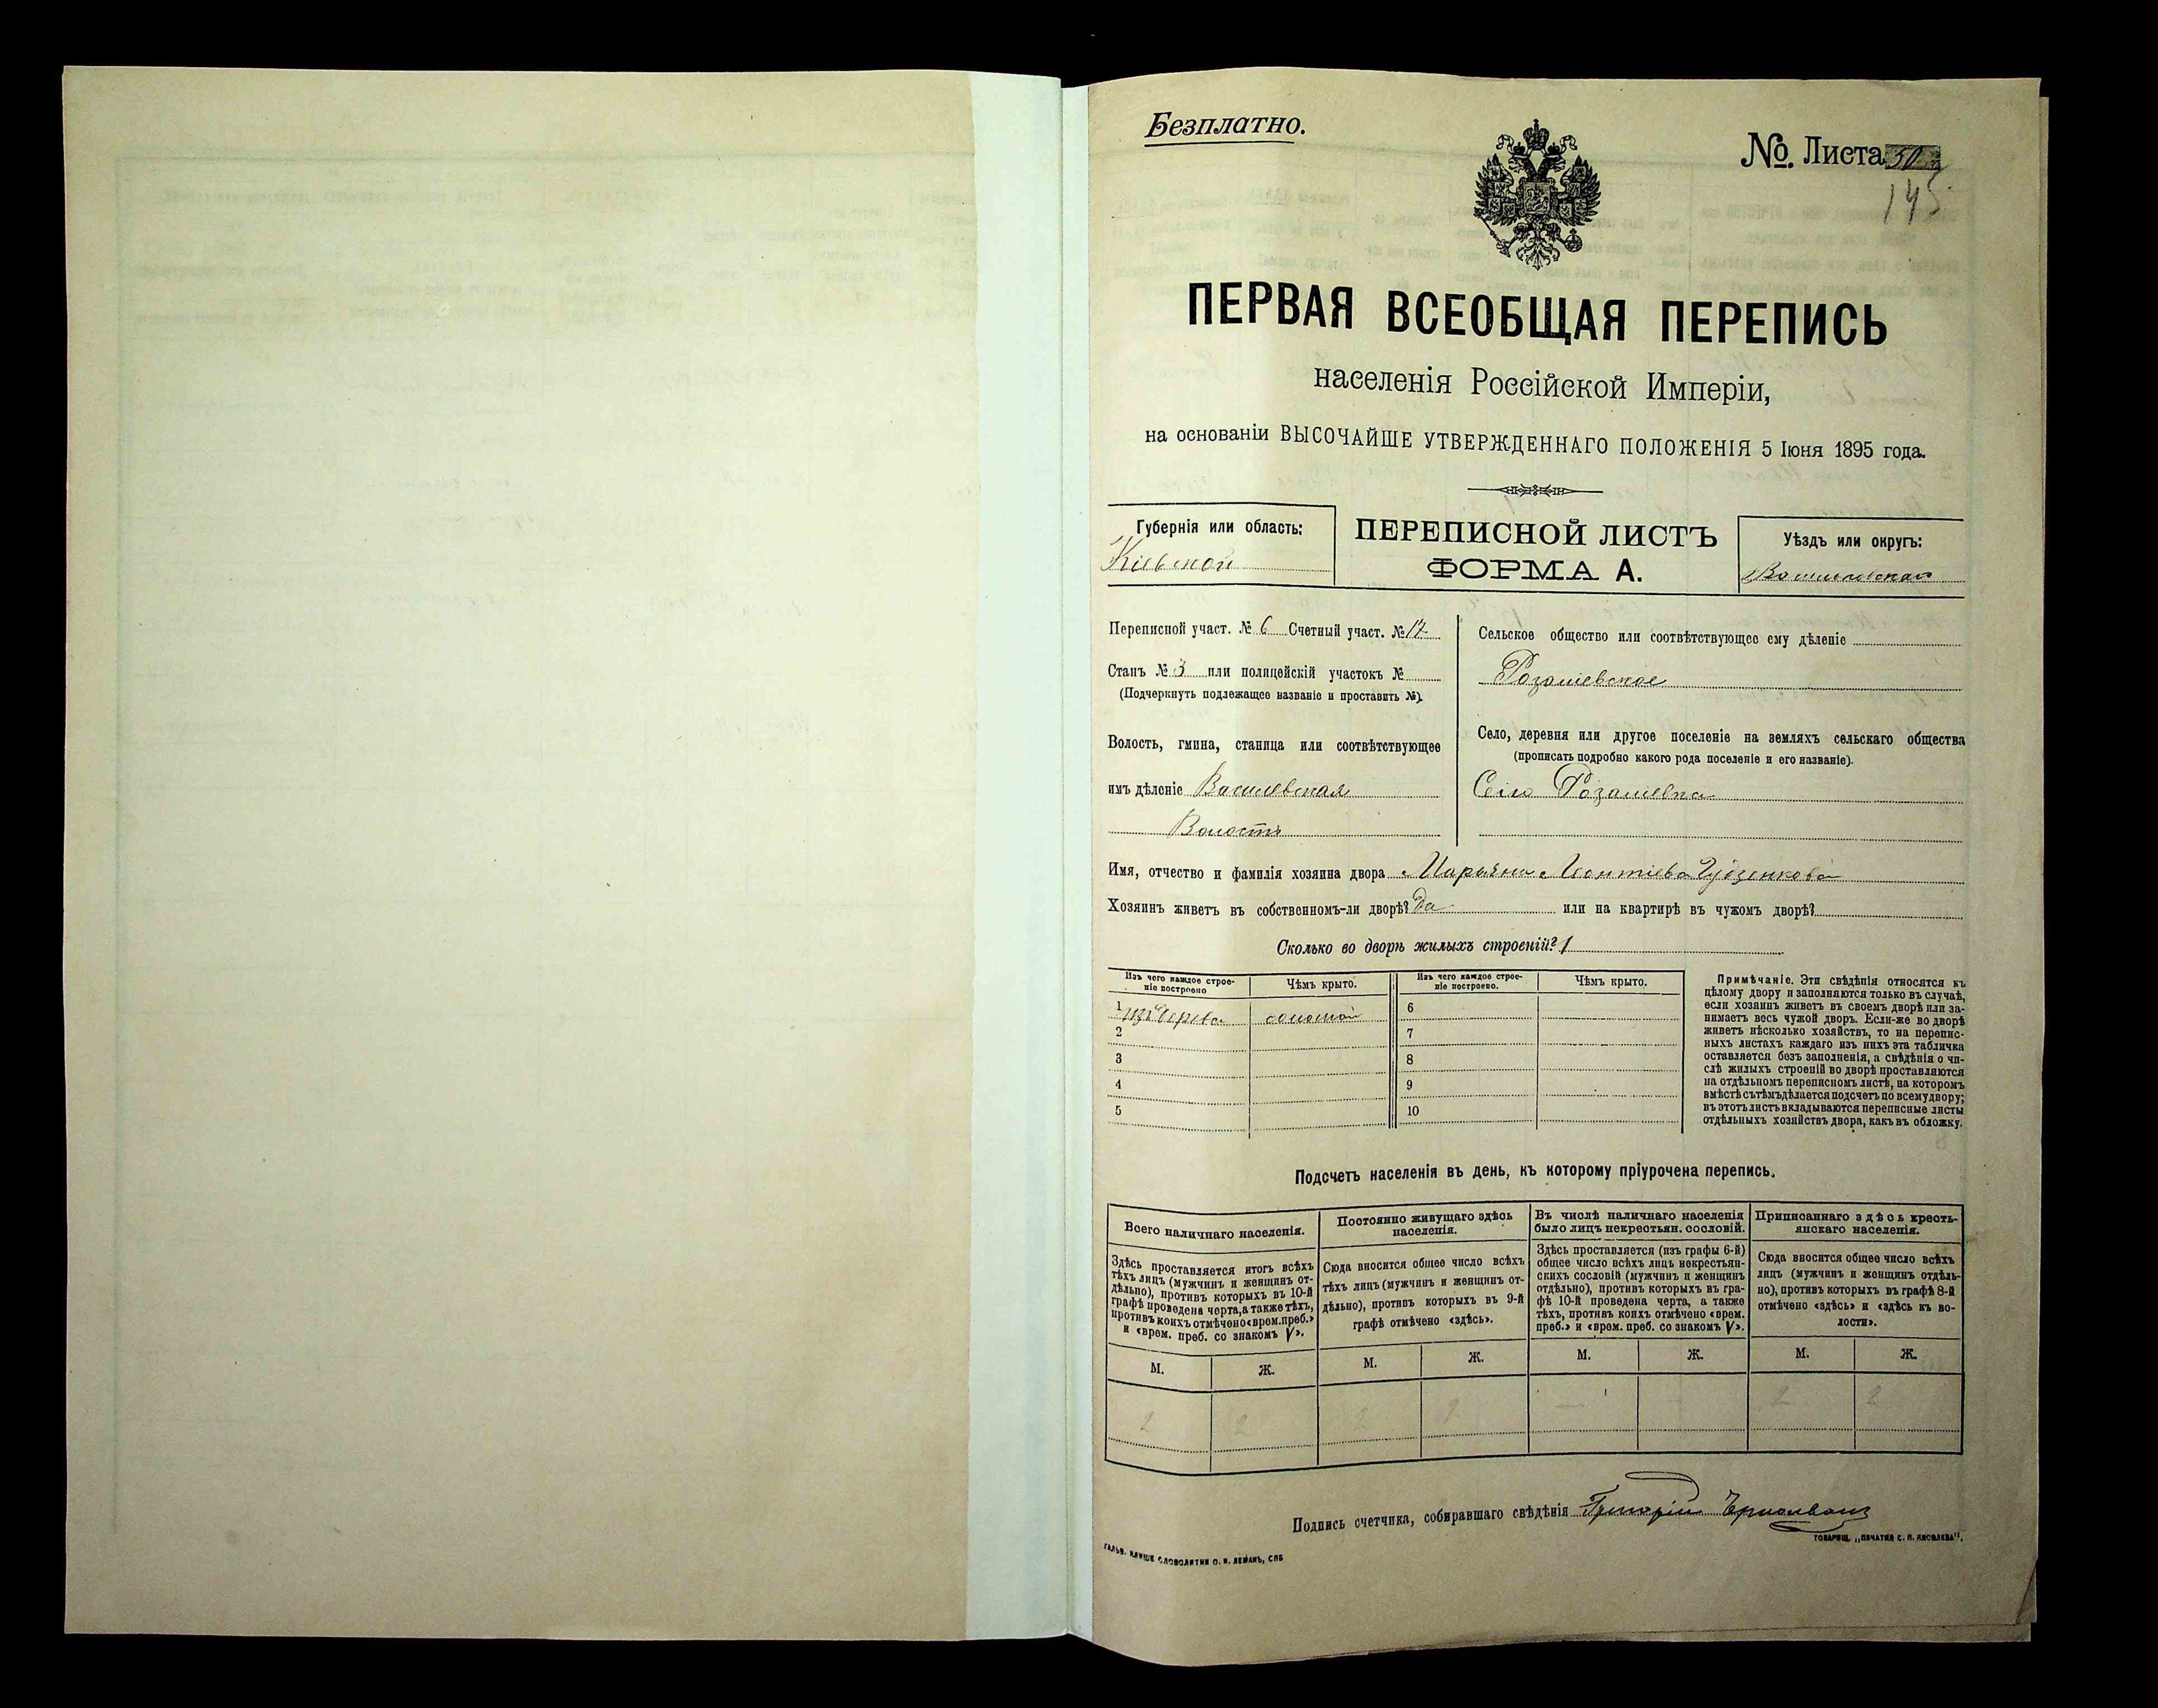 Безплатно.
№. Листа 50
145
ПЕРВАЯ ВСЕОБЩАЯ ПЕРЕПИСЬ
населенія Россійской Имперіи,
на основаніи ВЫСОЧАЙШЕ УТВЕРЖДЕННАГО ПОЛОЖЕНІЯ 5 Іюня 1895 года.
Губернія или область:
Кіевской
ПЕРЕПИСНОЙ ЛИСТЪ
ФОРМА А.
Уѣздъ или округъ:
Переписной участ. № 6 Счетный участ. № 17
Станъ № 3 или полицейскій участокъ №
(Подчеркнуть подлежащее названіе и проставить №).
Волость, гмина, станица или соотвѣтствующее
имъ дѣленіе
Волость
Сельское общество или соотвѣтствующее ему дѣленіе
Розалиевское
Село, деревня или другое поселеніе на земляхъ сельскаго общества
(прописать подробно какого рода поселеніе и его названіе).
Село Розалиевка
Имя, отчество и фамилія хозяина двора Марьяна Леонтіева Гудзенкова
Хозяинъ живетъ въ собственномъ-ли дворѣ? Да или на квартирѣ въ чужомъ дворѣ?
Сколько во дворѣ жилыхъ строеній? 1
Изъ чего каждое строе-
ніе построено
Чѣмъ крыто.
Изъ чего каждое строе-
ніе построено.
Чѣмъ крыто.
1 изъ дерева соломой
2
3
4
5
6
7
8
9
10
Примѣчаніе. Эти свѣдѣнія относятся къ
цѣлому двору и заполняются только въ случаѣ,
если хозяинъ живетъ въ своемъ дворѣ или за-
нимаетъ весь чужой дворъ. Если-же во дворѣ
живетъ нѣсколько хозяйствъ, то на перепис-
ныхъ листахъ каждаго изъ нихъ эта табличка
оставляется безъ заполненія, а свѣдѣнія о чи-
слѣ жилыхъ строеній во дворѣ проставляются
на отдѣльномъ переписномъ листѣ, на которомъ
вмѣстѣ съ тѣмъ дѣлается подсчетъ по всему двору;
въ этотъ листъ вкладываются переписные листы
отдѣльныхъ хозяйствъ двора, какъ въ обложку.
Подсчетъ населенія въ день, къ которому пріурочена перепись.
Всего наличнаго населенія.
Здѣсь проставляется итогъ всѣхъ
тѣхъ лицъ (мужчинъ и женщинъ от-
дѣльно), противъ которыхъ въ 10-й
графѣ проведена черта, а также тѣхъ,
противъ коихъ отмѣчено «врем. преб.»
и «врем. преб. со знакомъ V».
Постоянно живущаго здѣсь
населенія.
Сюда вносится общее число всѣхъ
тѣхъ лицъ (мужчинъ и женщинъ от-
дѣльно), противъ которыхъ въ 9-й
графѣ отмѣчено «здѣсь».
Въ числѣ наличнаго населенія
было лицъ некрестьян. сословій.
Здѣсь проставляется (изъ графы 6-й)
общее число всѣхъ лицъ некрестьян-
скихъ сословій (мужчинъ и женщинъ
отдѣльно), противъ которыхъ въ гра-
фѣ 10-й проведена черта, а также
тѣхъ, противъ коихъ отмѣчено «врем.
преб.» и «врем. преб. со знакомъ V».
Приписаннаго здѣсь кресть-
янскаго населенія.
Сюда вносится общее число всѣхъ
лицъ (мужчинъ и женщинъ отдѣль-
но), противъ которыхъ въ графѣ 8-й
отмѣчено «здѣсь» и «здѣсь къ во-
лости».
М. Ж. М. Ж. М. Ж. М. Ж.
2 2 2 2 — — 2 2
Подпись счетчика, собиравшаго свѣдѣнія Григорій
ГАЛЬВ. КЛИШЕ СЛОВОЛИТНИ О. И. ЛЕМАНЪ, СПБ
ТОВАРИЩ. „ПЕЧАТНЯ С. П. ЯКОВЛЕВА".